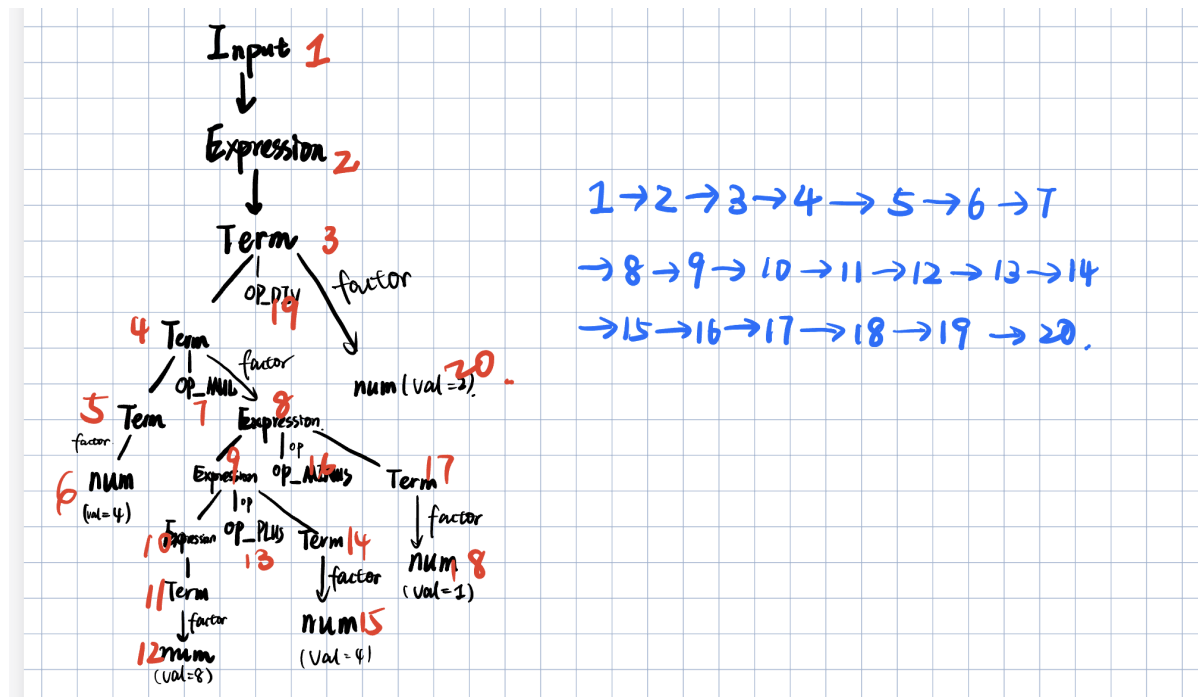 Input 1
Expression 2
Term 3
OP_DIV 19
factor
4 Term
factor
OP_MUL 7
num (val=2). 20.
5 Term
8 Expression
factor
op
9 Expression
OP_MINUS 16
Term 17
6 num
(val=4)
op
factor
10 Expression
OP_PLUS 13
Term 14
num 18
(val=1)
11 Term
factor
factor
num 15
(val=4)
12 num
(val=8)
1→2→3→4→5→6→7
→8→9→10→11→12→13→14
→15→16→17→18→19→20.